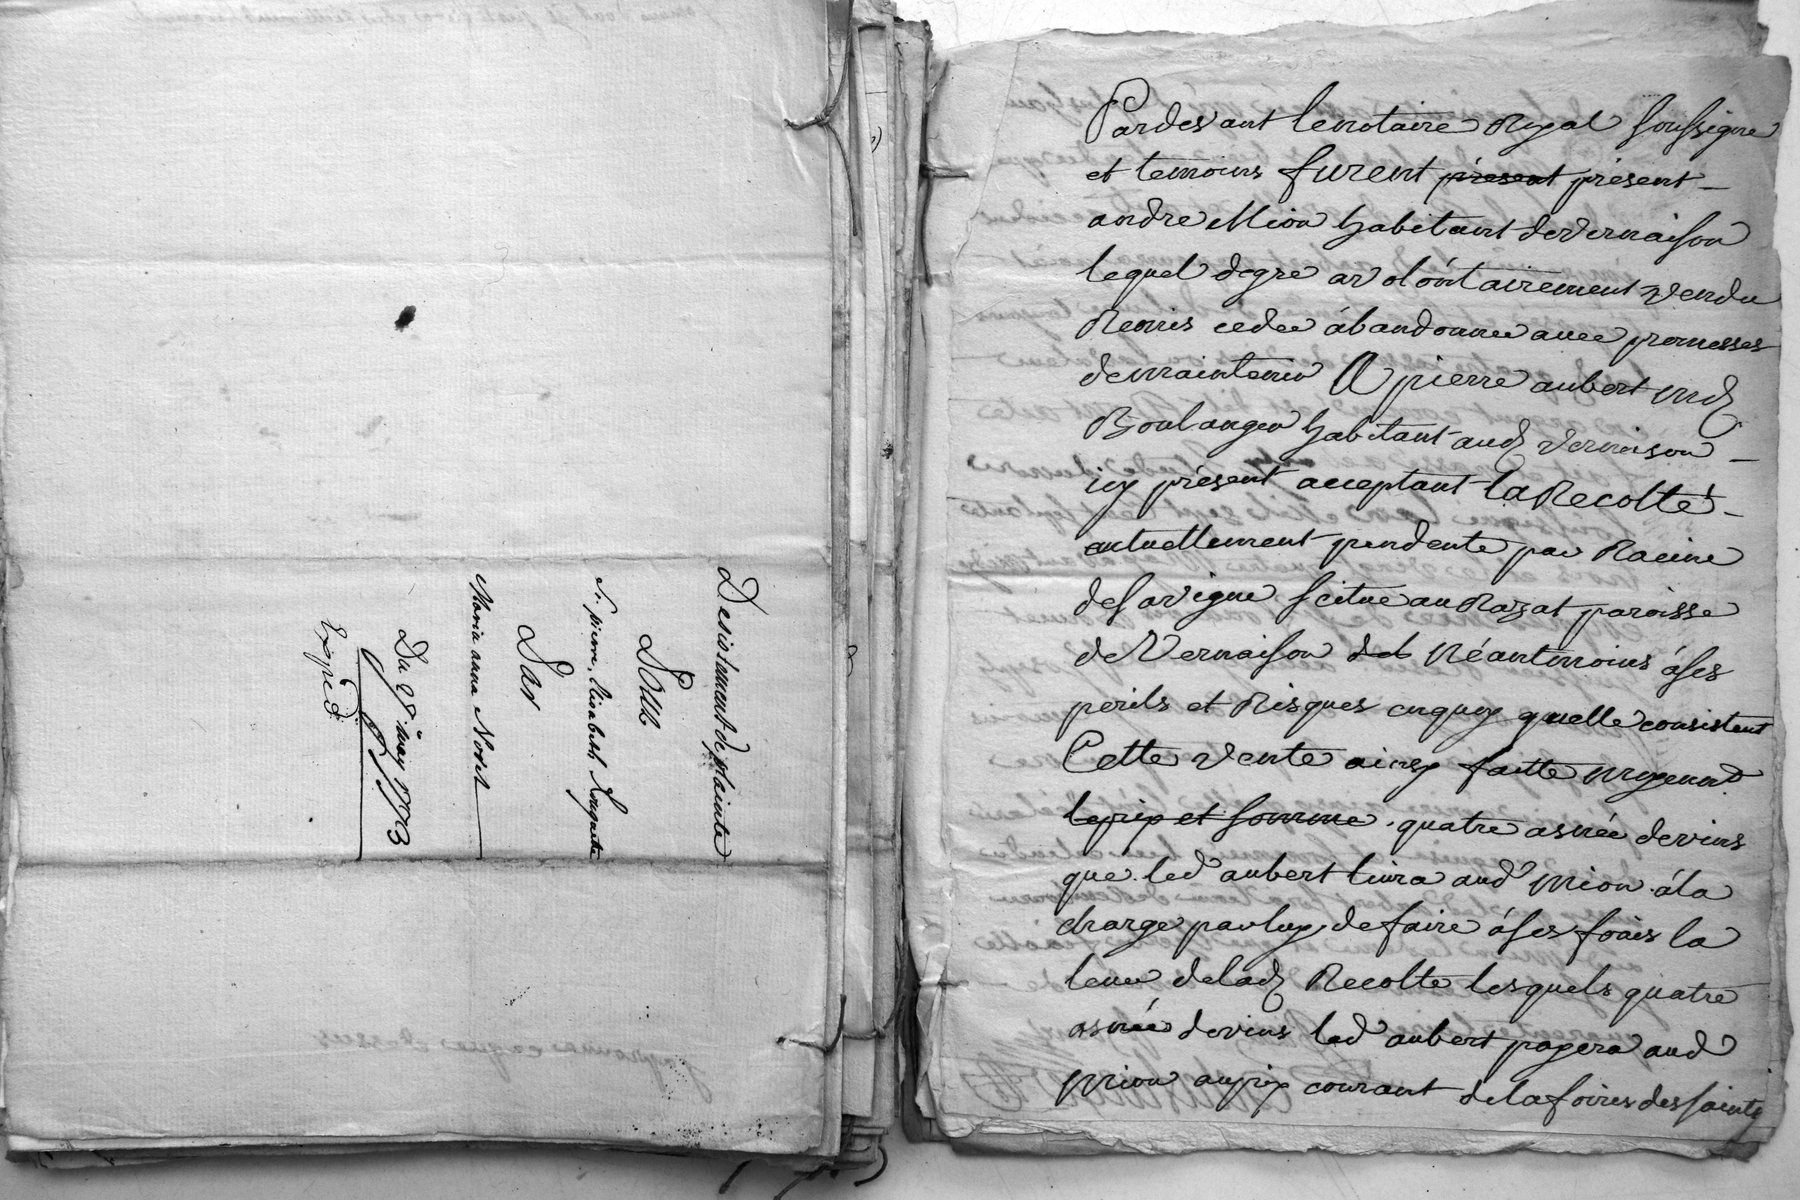 Desistement de plainte
Pour
Sr. pierre, Elisabeth
Par
Maria anna Noset
Du 29 may 1773
Expéd.
Pardevant le notaire Royal soussigne
et temoins furent présent présent
andre Mion habitant de vernaison
lequel degre a volontairement vendu
Remis cedee abandonnee avec promesses
de maintenir A pierre aubert md
Boulanger habitant aud vernaison
icy présent acceptant la Recolté
actuellement pendente par Racine
de sa vigne scitue au Razat paroisse
de Vernaison Néantmoins á ses
perils et Risques enquoy quelle consistent
Cette vente ainsy faitte moyenant
le prix et somme quatre asnée de vins
que led aubert livra aud Mion á la
charge par luy de faire á ses frais la
leve de lad Recolte lesquels quatre
asnée de vins led aubert payera aud
Mion au prix courant de la foires des saints